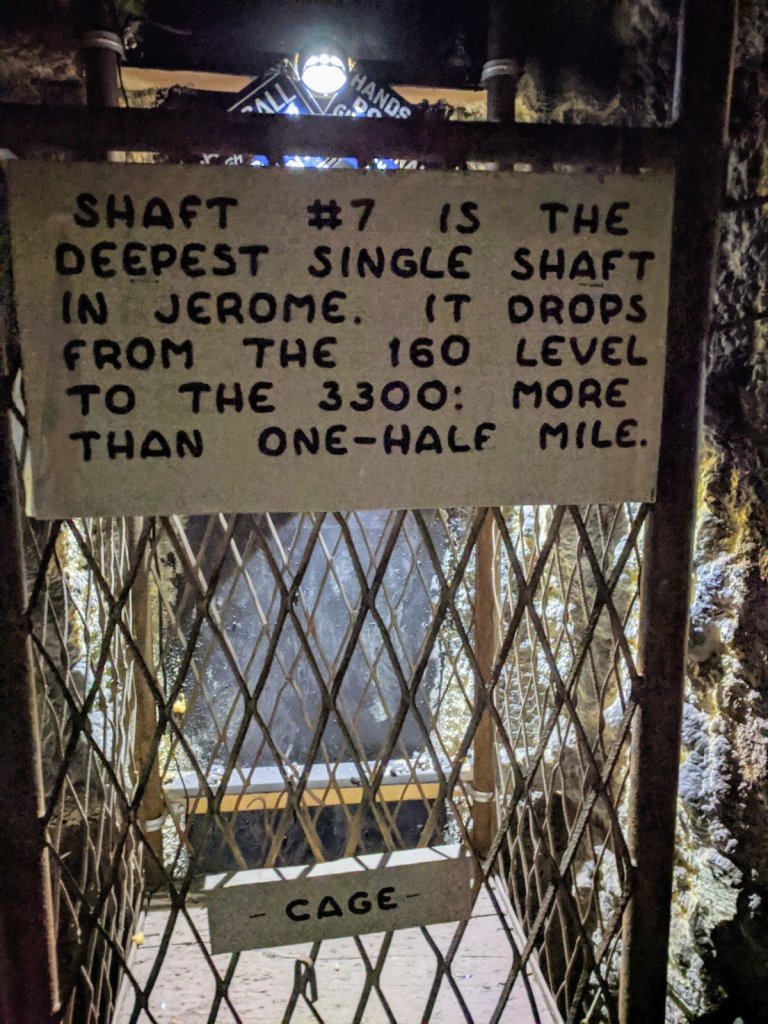 BALL
HANDS
SHAFT #7 IS THE
DEEPEST SINGLE SHAFT
IN JEROME. IT DROPS
FROM THE 160 LEVEL
TO THE 3300: MORE
THAN ONE-HALF MILE.
- CAGE -